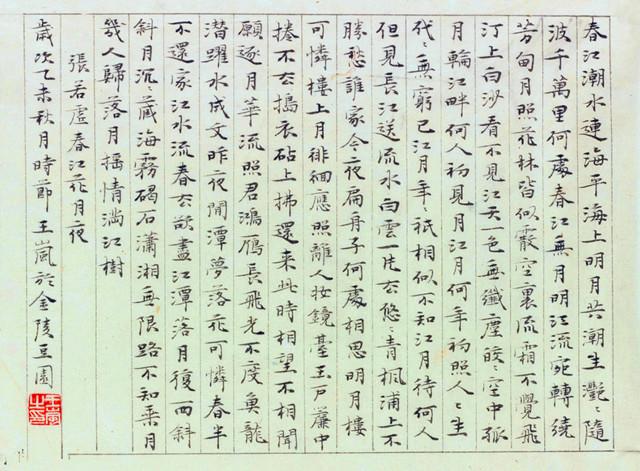 春江潮水連海平海上明月共潮生灔〻隨
波千萬里何處春江無月明江流宛轉繞
芳甸月照花林皆似霰空裏流霜不覺飛
汀上白沙看不見江天一色無纖塵皎〻空中孤
月輪江畔何人初見月江月何年初照人〻生
代〻無窮已江月年〻祇相似不知江月待何人
但見長江送流水白雲一片去悠〻青楓浦上不
勝愁誰家今夜扁舟子何處相思明月樓
可憐樓上月徘徊應照離人妝鏡臺玉戶簾中
捲不去搗衣砧上拂還來此時相望不相聞
願逐月華流照君鴻雁長飛光不度魚龍
潛躍水成文昨夜閒潭夢落花可憐春半
不還家江水流春去欲盡江潭落月復西斜
斜月沉〻藏海霧碣石瀟湘無限路不知乘月
幾人歸落月搖情滿江樹
張若虛春江花月夜
歲次乙未秋月時節王嵐於金陵豆園